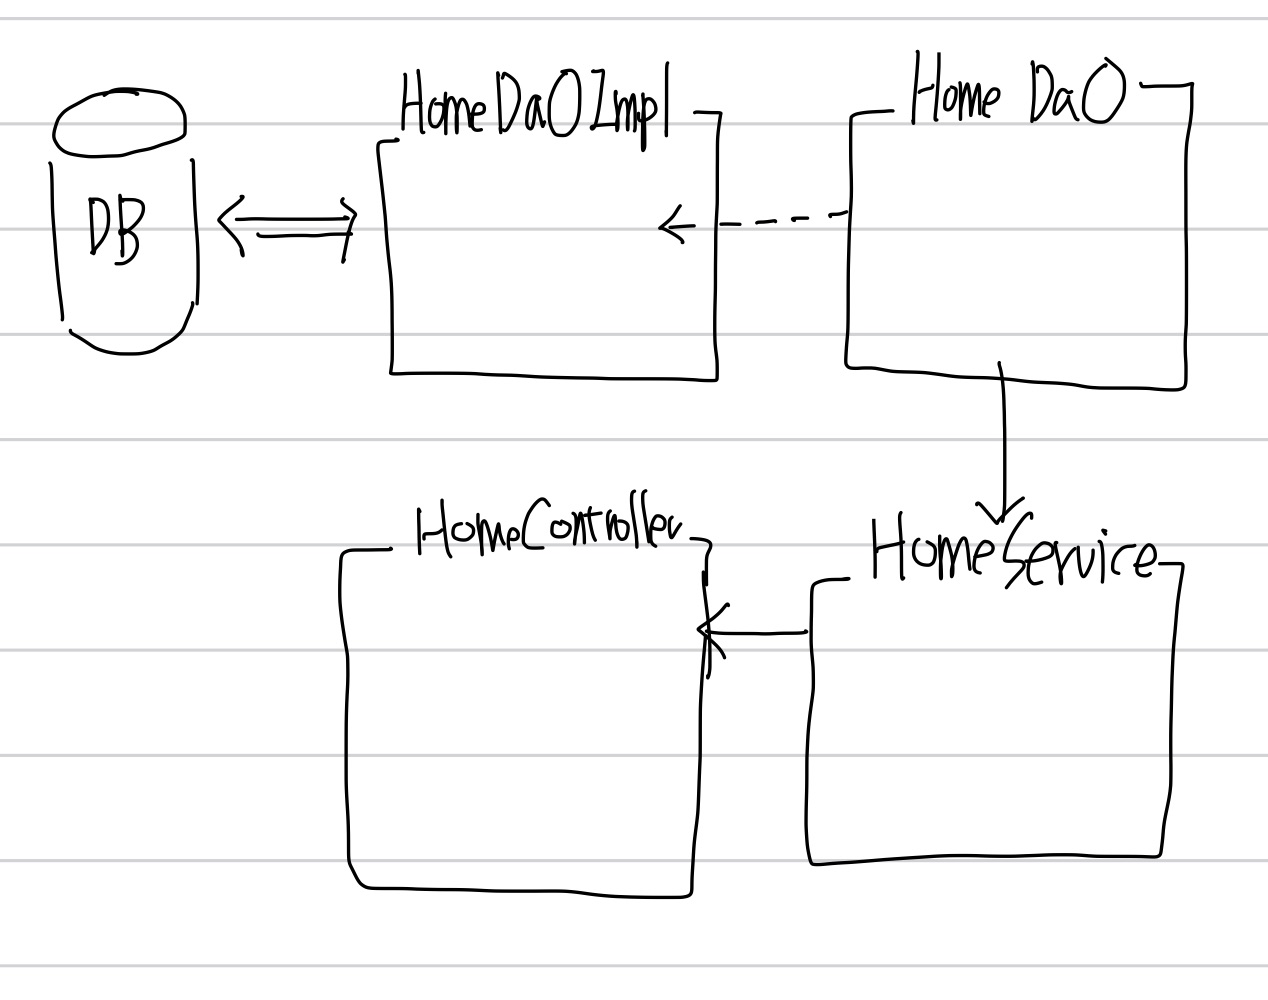 HomeDaOImpl
Home DaO
DB
HomeController
HomeService